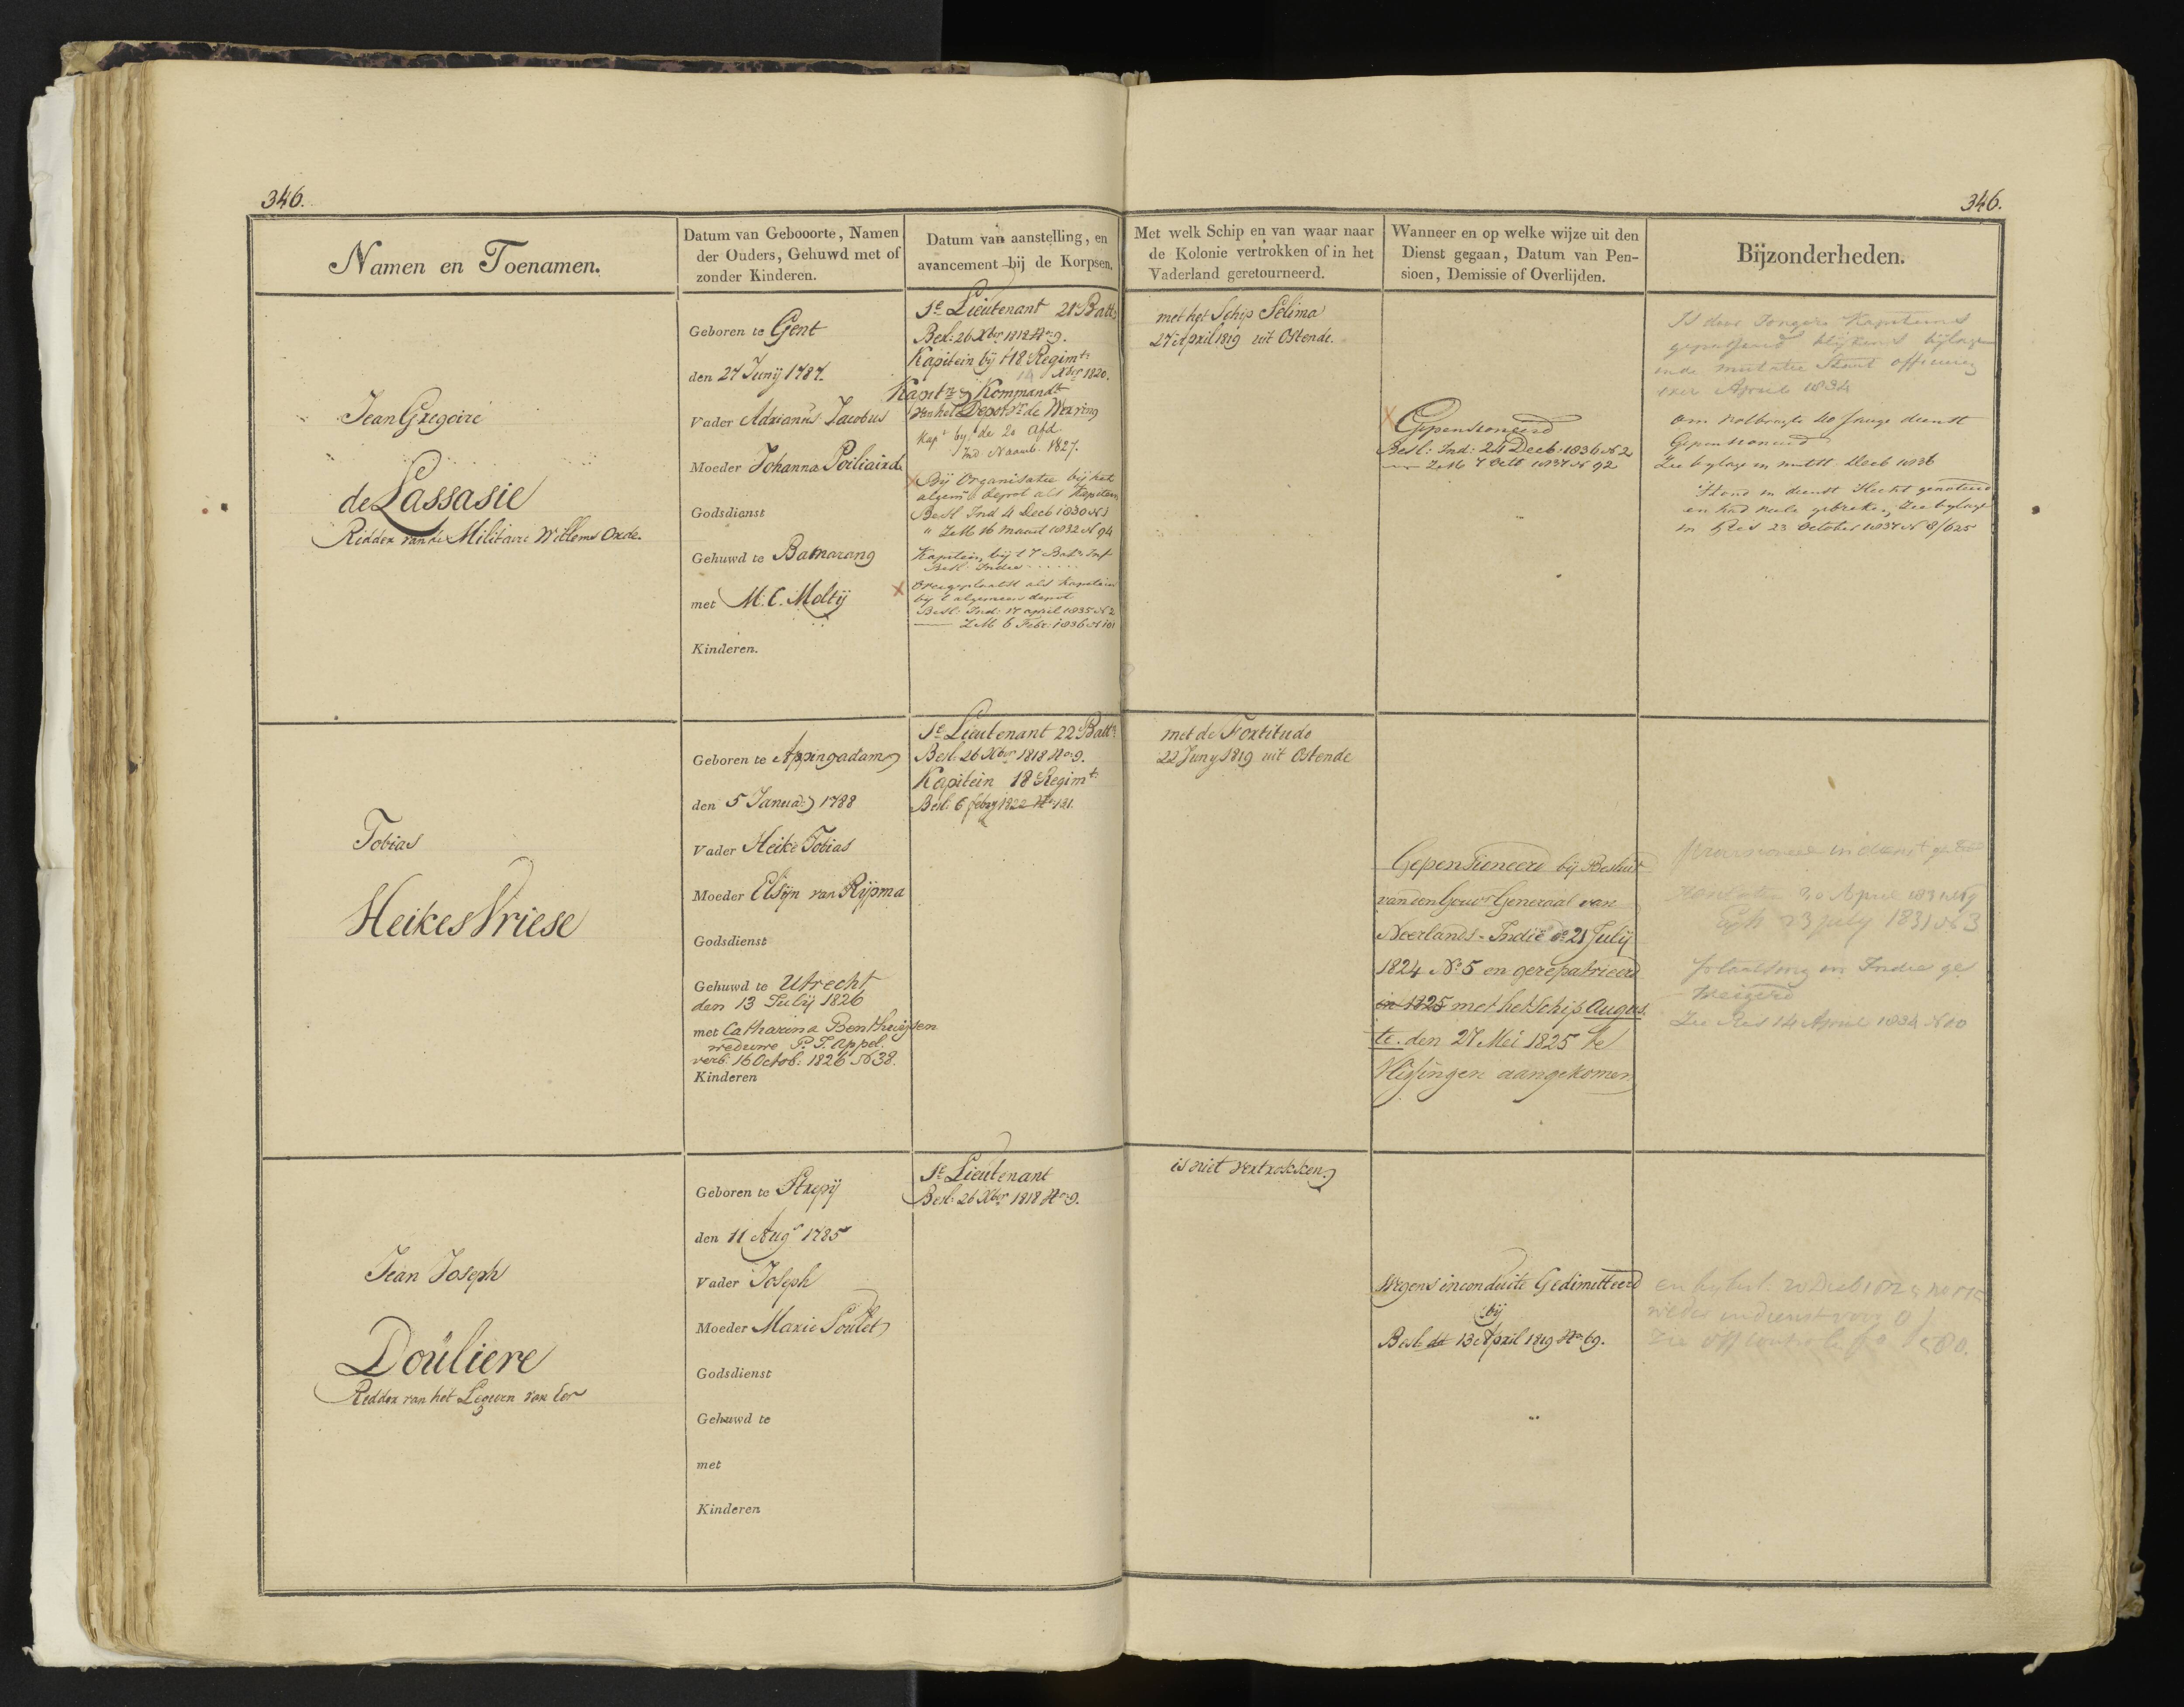 346.
346.
Namen en Toenamen.
Datum van Gebooorte, Namen
der Ouders, Gehuwd met of
zonder Kinderen.
Datum van aanstelling, en
avancement bij de Korpsen.
Met welk Schip en van waar naar
de Kolonie vertrokken of in het
Vaderland geretourneerd.
Wanneer en op welke wijze uit den
Dienst gegaan, Datum van Pen-
sioen, Demissie of Overlijden.
Bijzonderheden.
Jean Gregoire
de Lassasie
Ridder van de Militaire Willems Orde.
Geboren te Gent
den 27 Junij 1787.
Vader Adrianus Jacobus
Moeder Johanna Poiliaird
Godsdienst
Gehuwd te Bamarang
met M. C. Moltij
Kinderen.
1e Lieutenant 21e Batt:
Besl: 26 Xber 1818 No 9.
Kapitein bij 't 18 Regimt:
14 Xber 1820.
Kapitn & Kommandt
van het Depot te de Wering
Kapt by de 2e Afd.
Ind. Naamb. 1827.
Bij Organisatie bij het
algem: depot als Kapitein
Besl Ind 4 Decb 1830 N 1
" ZM 16 Maart 1832 N 94
Kapitein bij 't 7 Batn Inf
Besl: Indie ......
Overgeplaatst als Kapitein
bij 't algemeen depot.
Besl: Ind: 17 april 1835 N 2
— ZM 6 Febr: 1836 N 101
met het Schip Selima
27 April 1819 uit Ostende.
Gepensioneerd
Besl: Ind: 24 Decb: 1836 N 2
— ZM 7 Octb 1837 N 92
Is door Jongere Kapiteins
gepasseerd blijkens bijlage
inde mutatie Staat officieren
over April 1834
Om volbragte 20 Jarige dienst
Gepensioneerd
Zie bylage in mutst. Decb 1836
Stond in dienst slecht genoteerd
en had vele gebreken, Zie bylage
in Res 23 October 1837 N 8/625
Tobias
Heikes Vriese
Geboren te Appingadam
den 5 Januarij 1788
Vader Heike Tobias
Moeder Elsijn van Rijpma
Godsdienst
Gehuwd te Utrecht
den 13 Julij 1826
met Catharina Benthuijsen
weduwe P. J. Appel.
verb. 16 Octob: 1826 N 38.
Kinderen
1e Lieutenant 22e Batt:
Besl: 26 Xber 1818 No 9.
Kapitein 18 Regimt:
Besl: 6 febry 1822 No 131.
met de Fortitudo
22 Juny 1819 uit Ostende
Gepensioneerd bij Besluit
van den Gouvr Generaal van
Neerlands-Indië de 21 Julij
1824 No 5 en gerepatrieerd
in 1825 met het schip Augus-
te. den 27 Mei 1825 te
Vlissingen aangekomen
Provisioneel in dienst
20 April 1831
23 july 1831 N 3
plaatsing in Indie ge
weigerd
Zie Res 14 April 1834 N 10
Jean Joseph
Doüliere
Ridder van het Legioen van Eer
Geboren te Strepij
den 11 Aug 1785
Vader Joseph
Moeder Marie Poulet
Godsdienst
Gehuwd te
met
Kinderen
1e Lieutenant
Besl: 26 Xber 1818 No 9.
is niet vertrokken.
Wegens inconduite Gedimitteerd
bij
Besl: dd 13 April 1819 No 69.
en by besl. 20 Decb
weder in dienst
Zie off controle fo 580.